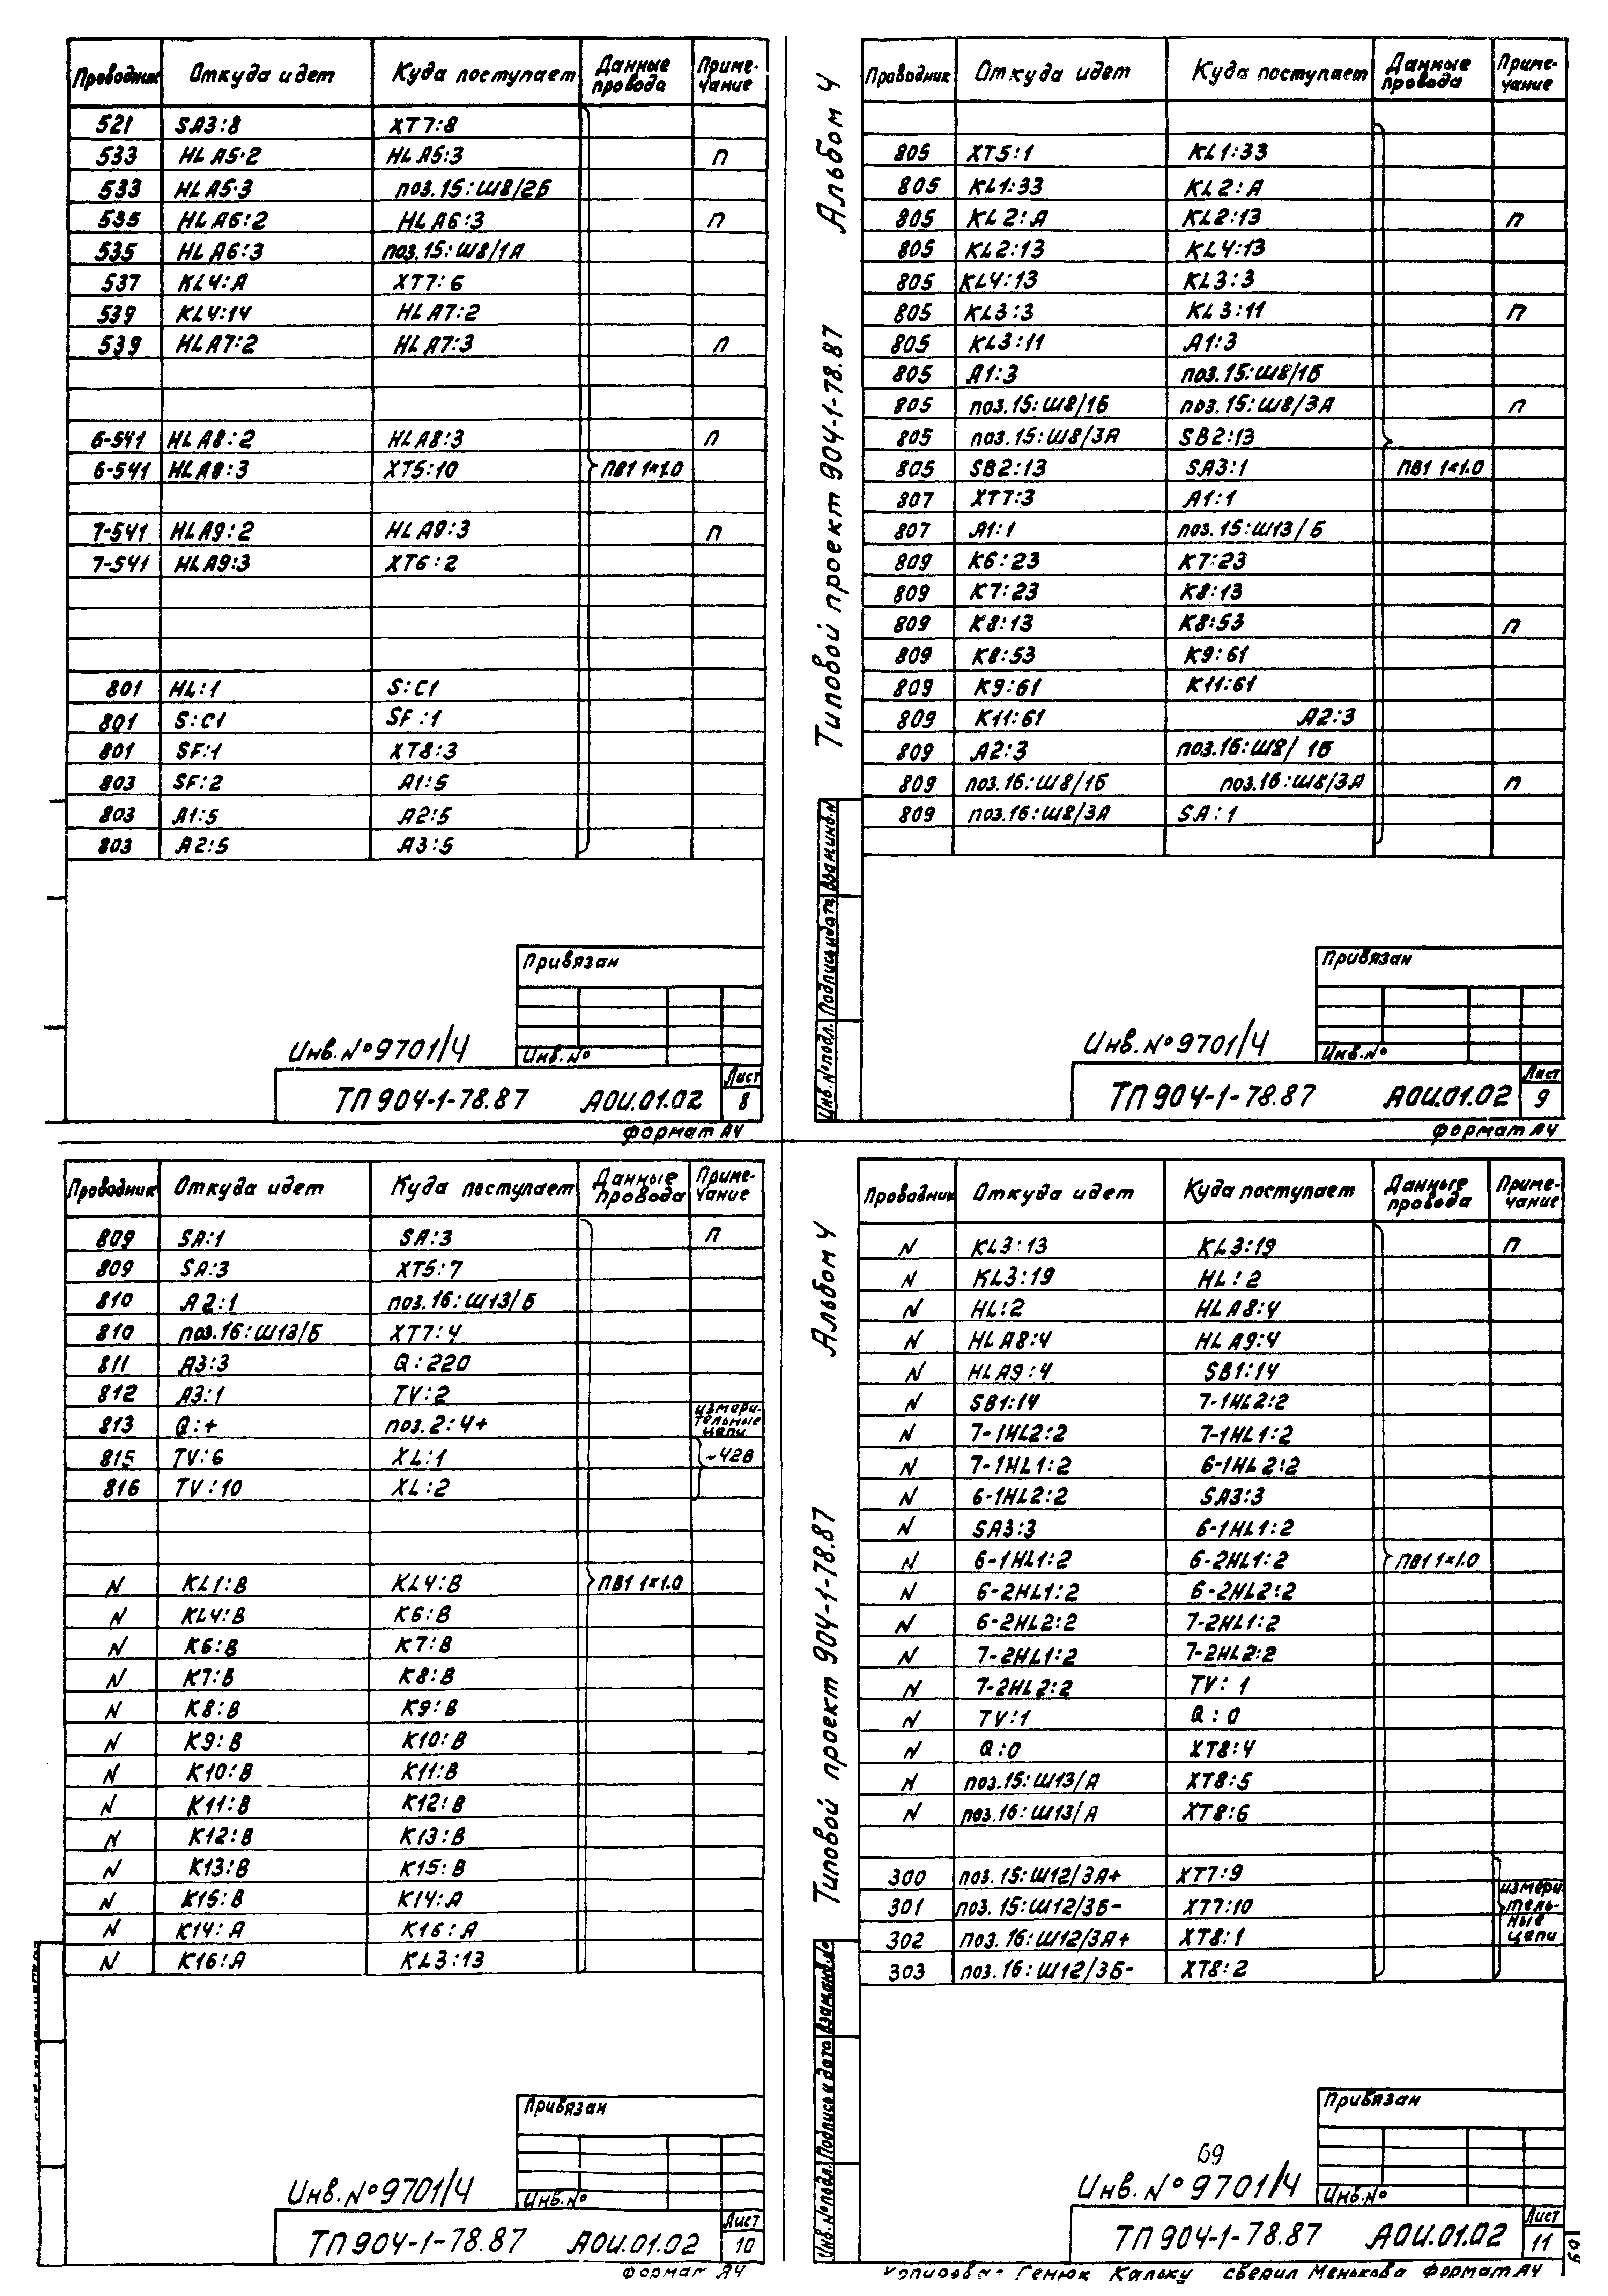 Проводник Откуда идет Куда поступает Данные провода Примечание
521 SA3:8 XT7:8
533 HLA5:2 HLA5:3 П
533 HLA5:3 поз.15:Ш8/2Б
535 HLA6:2 HLA6:3 П
535 HLA6:3 поз.15:Ш8/1А
537 KL4:A XT7:6
539 KL4:14 HLA7:2
539 HLA7:2 HLA7:3 П
6-541 HLA8:2 HLA8:3 П
6-541 HLA8:3 XT5:10 ПВ1 1×1.0
7-541 HLA9:2 HLA9:3 П
7-541 HLA9:3 XT6:2
801 HL:1 S:C1
801 S:C1 SF:1
801 SF:1 XT8:3
803 SF:2 A1:5
803 A1:5 A2:5
803 A2:5 A3:5
Привязан
Инв.№ 9701/4
Инв.№
ТП 904-1-78.87 АОИ.01.02 Лист 8
формат А4
Альбом 4
Типовой проект 904-1-78.87
Проводник Откуда идет Куда поступает Данные провода Примечание
805 XT5:1 KL1:33
805 KL1:33 KL2:A
805 KL2:A KL2:13 П
805 KL2:13 KL4:13
805 KL4:13 KL3:3
805 KL3:3 KL3:11 П
805 KL3:11 A1:3
805 A1:3 поз.15:Ш8/1Б
805 поз.15:Ш8/1Б поз.15:Ш8/3А П
805 поз.15:Ш8/3А SB2:13
805 SB2:13 SA3:1 ПВ1 1×1.0
807 XT7:3 A1:1
807 A1:1 поз.15:Ш13/Б
809 K6:23 K7:23
809 K7:23 K8:13
809 K8:13 K8:53 П
809 K8:53 K9:61
809 K9:61 K11:61
809 K11:61 A2:3
809 A2:3 поз.16:Ш8/1Б
809 поз.16:Ш8/1Б поз.16:Ш8/3А П
809 поз.16:Ш8/3А SA:1
Инв.№ подл. Подпись и дата Взам.инв.№
Привязан
Инв.№ 9701/4
Инв.№
ТП 904-1-78.87 АОИ.01.02 Лист 9
формат А4
Проводник Откуда идет Куда поступает Данные провода Примечание
809 SA:1 SA:3 П
809 SA:3 XT5:7
810 A2:1 поз.16:Ш13/Б
810 поз.16:Ш13/Б XT7:4
811 A3:3 Q:220
812 A3:1 TV:2
813 Q:+ поз.2:4+ измерительные цепи
815 TV:6 XL:1 ~42В
816 TV:10 XL:2
N KL1:B KL4:B ПВ1 1×1.0
N KL4:B K6:B
N K6:B K7:B
N K7:B K8:B
N K8:B K9:B
N K9:B K10:B
N K10:B K11:B
N K11:B K12:B
N K12:B K13:B
N K13:B K15:B
N K15:B K14:A
N K14:A K16:A
N K16:A KL3:13
Привязан
Инв.№ 9701/4
Инв.№
ТП 904-1-78.87 АОИ.01.02 Лист 10
формат А4
Альбом 4
Типовой проект 904-1-78.87
Проводник Откуда идет Куда поступает Данные провода Примечание
N KL3:13 KL3:19 П
N KL3:19 HL:2
N HL:2 HLA8:4
N HLA8:4 HLA9:4
N HLA9:4 SB1:14
N SB1:14 7-1HL2:2
N 7-1HL2:2 7-1HL1:2
N 7-1HL1:2 6-1HL2:2
N 6-1HL2:2 SA3:3
N SA3:3 6-1HL1:2
N 6-1HL1:2 6-2HL1:2 ПВ1 1×1.0
N 6-2HL1:2 6-2HL2:2
N 6-2HL2:2 7-2HL1:2
N 7-2HL1:2 7-2HL2:2
N 7-2HL2:2 TV:1
N TV:1 Q:0
N Q:0 XT8:4
N поз.15:Ш13/А XT8:5
N поз.16:Ш13/А XT8:6
300 поз.15:Ш12/3А+ XT7:9
301 поз.15:Ш12/3Б- XT7:10 измеритель-
302 поз.16:Ш12/3А+ XT8:1 ные цепи
303 поз.16:Ш12/3Б- XT8:2
Инв.№ подл. Подпись и дата Взам.инв.№
Привязан
69
Инв.№ 9701/4
Инв.№
ТП 904-1-78.87 АОИ.01.02 Лист 11
69
Копировал Генюк Кальку сверил Менькова формат А4